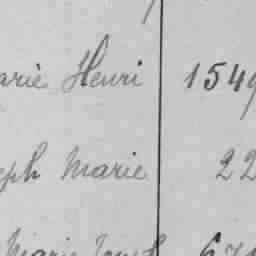 arie Henri 1549
eph Marie 22
Marie Joseph 671